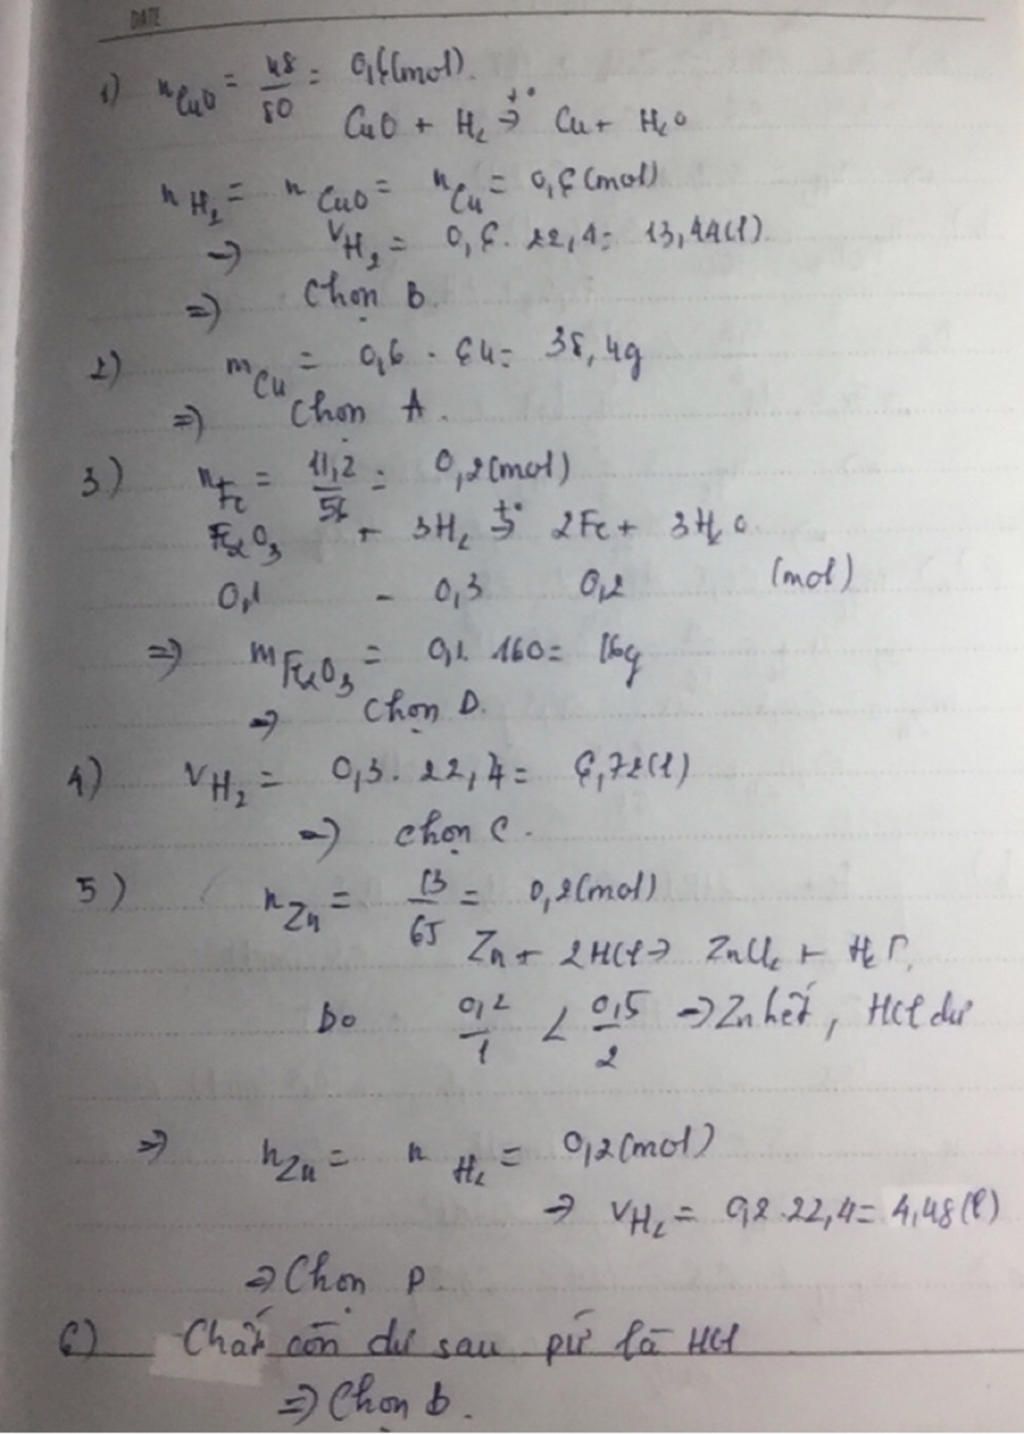 DATE
1) nCuO = 48/80 = 0,6(mol).
CuO + H2 t°→ Cu + H2O
nH2 = nCuO = nCu = 0,6(mol)
→ VH2 = 0,6. 22,4 = 13,44(l).
=> Chọn B.
2) mCu = 0,6 . 64 = 38,4g
=> Chọn A.
3) nFe = 11,2/56 = 0,2(mol)
Fe2O3 + 3H2 t°→ 2Fe + 3H2O
0,1 - 0,3 0,2 (mol)
=> mFe2O3 = 0,1. 160 = 16g
=> Chọn D.
4) VH2 = 0,3. 22,4 = 6,72(l)
=> Chọn C.
5) nZn = 13/65 = 0,2(mol)
Zn + 2HCl → ZnCl2 + H2↑.
Do 0,2/1 < 0,5/2 → Zn hết, HCl dư
=> nZn = nH2 = 0,2(mol)
→ VH2 = 0,2.22,4 = 4,48(l)
=> Chọn D.
6) Chất còn dư sau pứ là HCl
=> Chọn b.